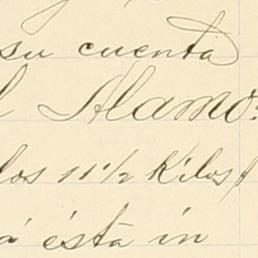 su cuenta
l Alamo.
los 11 1/2 Kilos
á ésta in